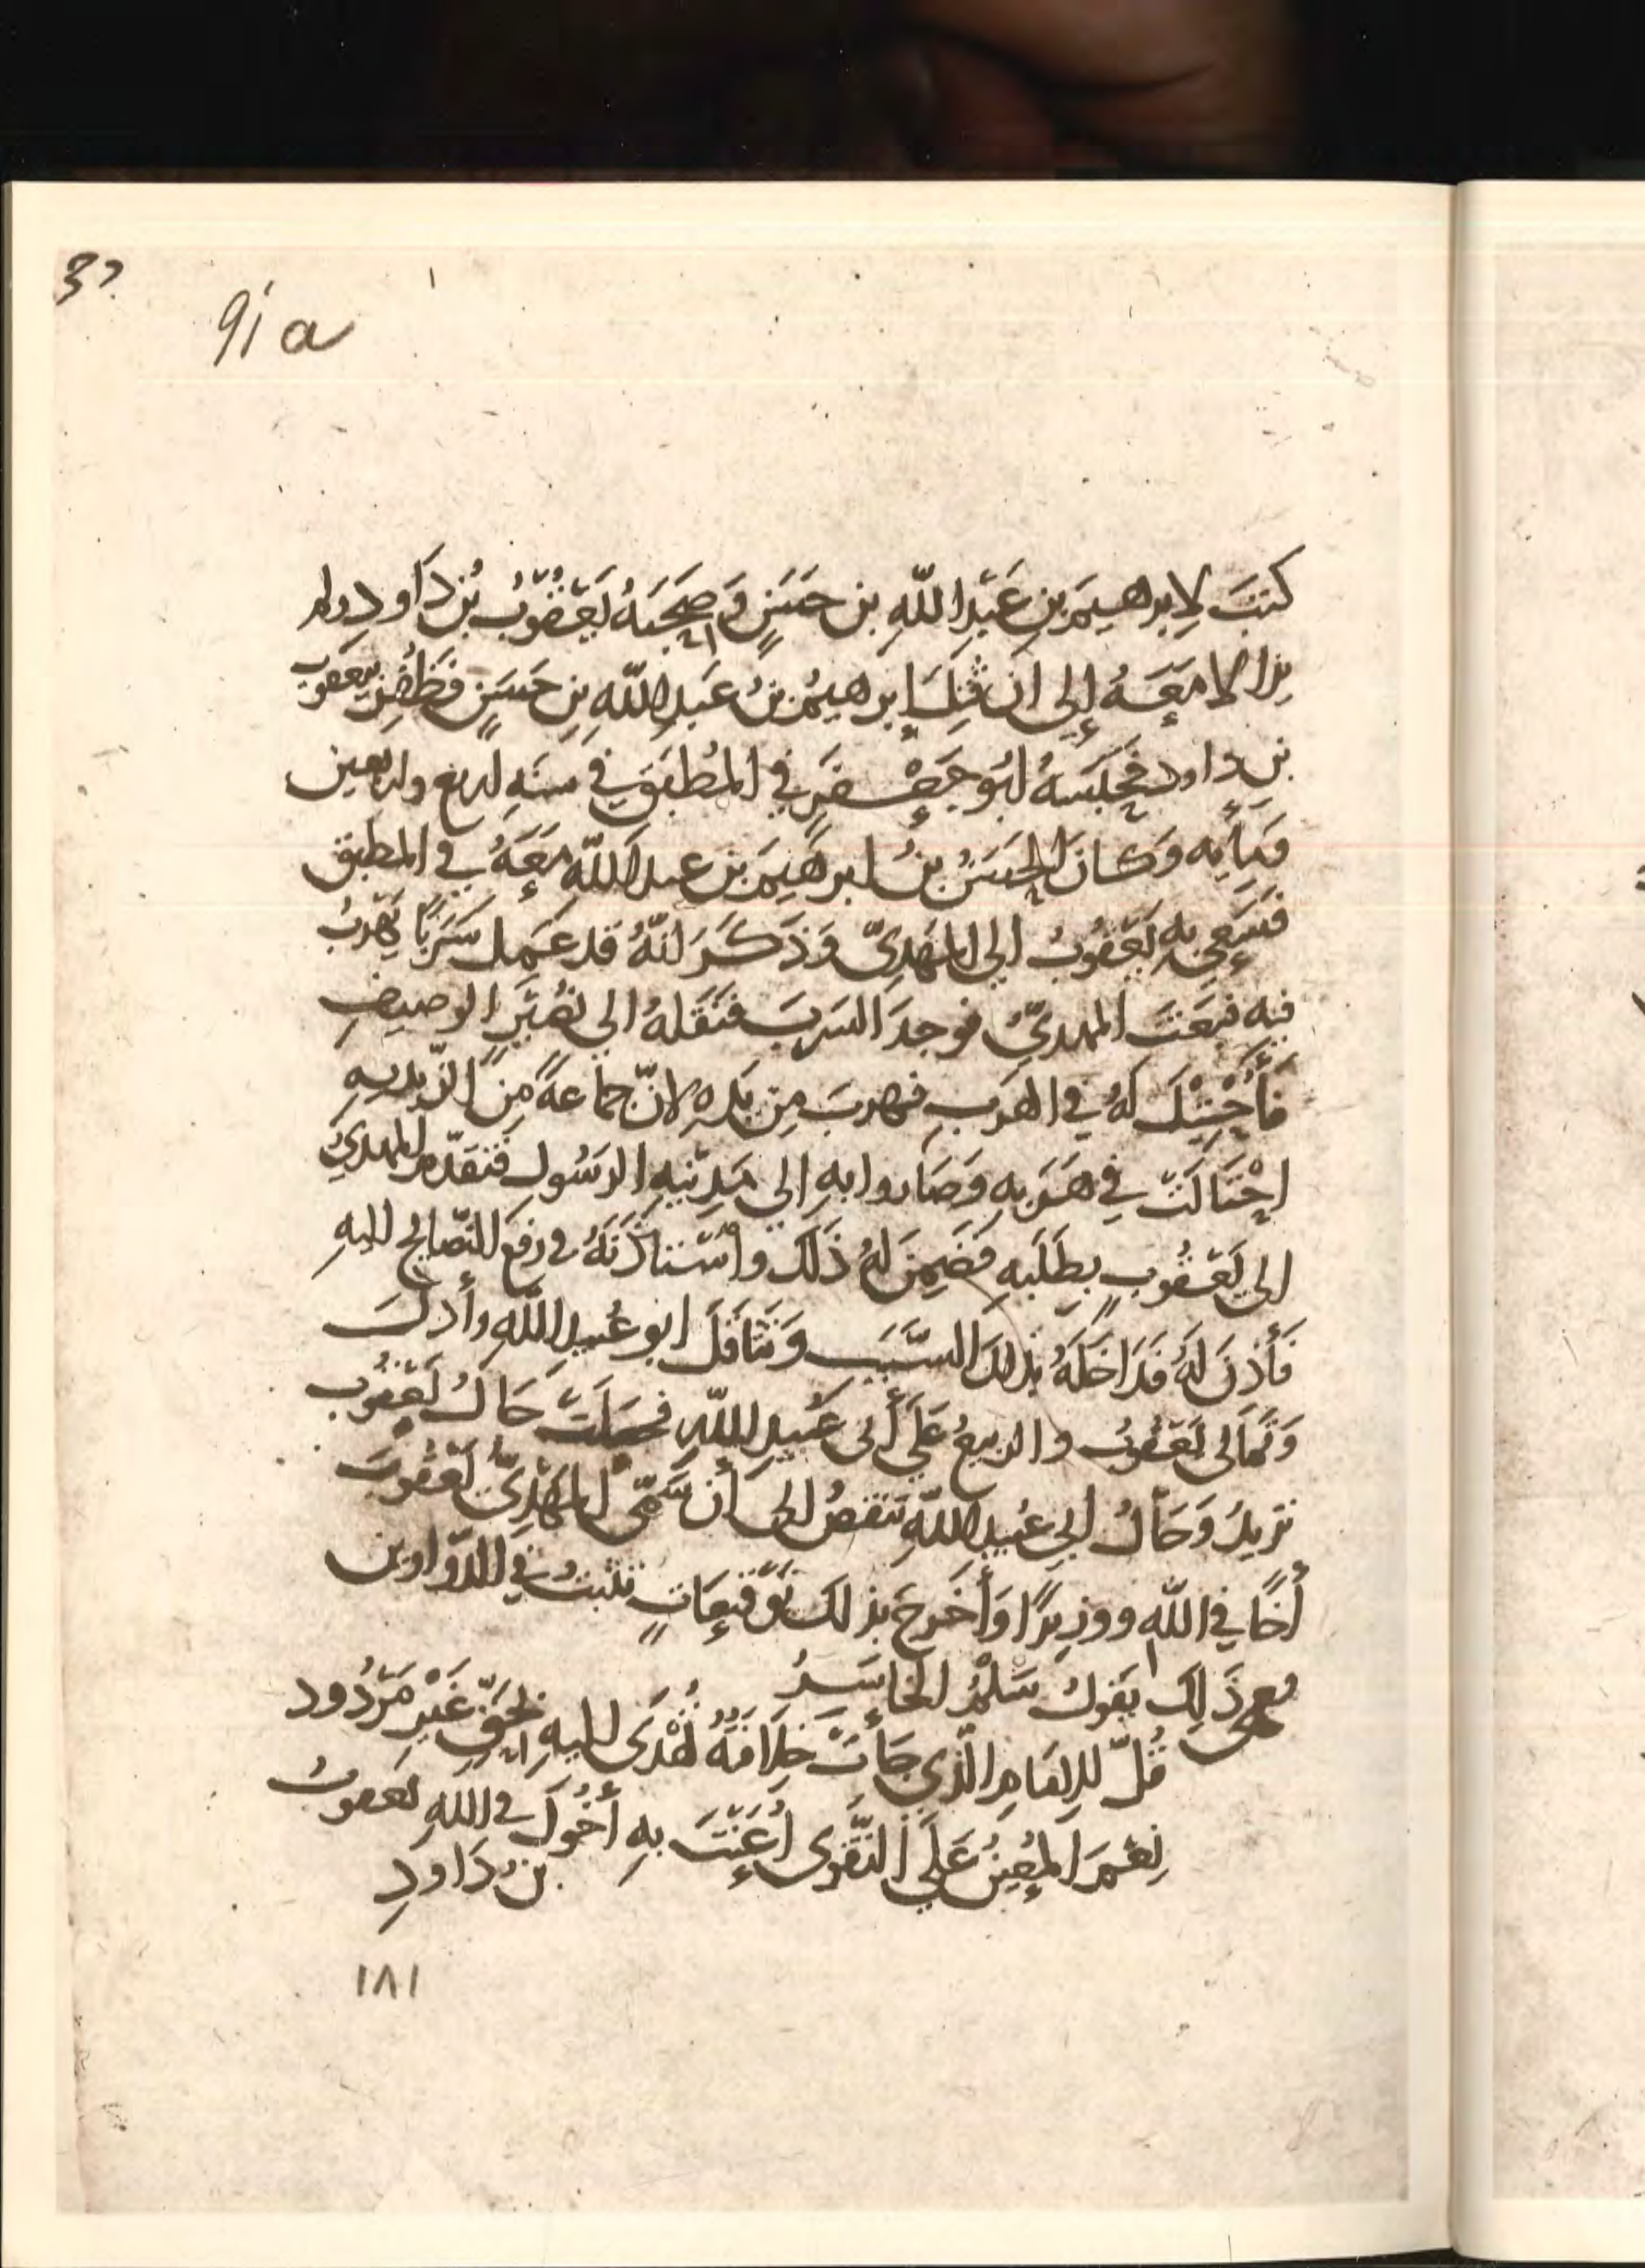 3?
91a
كتبَ لإبرهيمَ بنِ عَبْدِ اللّهِ بن حَسَنٍ وَصَحِبَهُ يَعْقُوبُ بْنُ دَاود ولم
يزالا مَعَهُ إلى ان قُتِلَ إبرهيمُ بنُ عَبدِ اللّهِ بنِ حَسَنٍ فَظُفِرَ بيعقوبَ
بن داود فَحَبَسَهُ أبُو جَعْفَرٍ في المُطْبَقِ في سنَهِ أربع واربعين
وَمِأيه وَكانَ الحَسَنُ بنُ ابرهيمَ بن عبد اللّهِ مَعَهُ في المطبق
فَسَعَى بِهِ يَعْقُوبُ الى المَهْدِىِّ وَذَكَرَ أنّهُ قد عَمِلَ سَرَبًا يَهْربُ
فيه فبَعَثَ المهدىُّ فوجدَ السَربَ فنَقَلهُ الى نُصَيْرٍ الوصيفِ
فَأُحْتِيلَ لهُ في الهَرَبِ فهربَ مِن يَدِهِ لانّ جماعةً مِنَ الزّيديهِ
احْتَالَتْ في هَرَبِهِ وَصَاروا بِهِ الى مَدِينهِ الرَسُولِ فَتقَدّمَ المهدىُّ
الى يَعْقُوبٍ بِطَلَبِهِ فَضَمِنَ لهُ ذَلكَ واسْتأذَنَهُ في رفعِ النّصَايحِ إليهِ
فَأَذِنَ لَهُ فَدَاخَلَهُ بذلكَ السَّبَبِ وَتَثَاقَلَ ابو عُبيدِ اللّهِ وأدلَّ
وَتمَالى يَعْقُوبُ والربيعُ عَلَى أبى عُبيدِ اللّهِ فجعلَتْ حَالُ يَعْقُوبَ
تزيدُ وَحَالُ أبى عُبيدِ اللّهِ تنقصُ إلى أن سَمّى المَهْدِىُّ يَعْقُوبَ
أخًا في اللّهِ ووزيرًا وَأَخرجَ بذلكَ تَوْقيعَاتٍ تثبتُ في الدّواوين
ففى ذَلِكَ يقولُ سَلْمُ الخاسِرُ
قُلْ للإمَامِ الّذي جَأَتْ خِلافَتُهُ تُهْدَى إليهِ بحَقٍّ غَيْرِ مَرْدُود
نِعْمَ المُعِينُ عَلَى التّقْوى أُعِنْتَ بِهِ أخُوكَ في اللهِ يعقوبُ
بنُ دَاودِ
١٨١